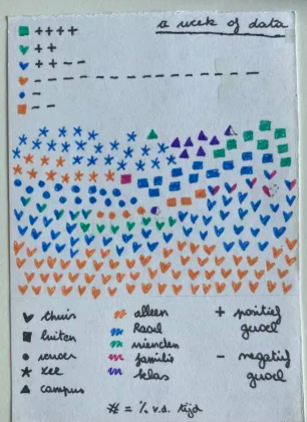 a week of data
++++
++
++--
- - - - - - - - - - - - - - - -
-
--
thuis
buiten
zee
campus
alleen
Raoul
vrienden
familie
klas
+ positief
gevoel
- negatief
gevoel
# = % v.d. tijd